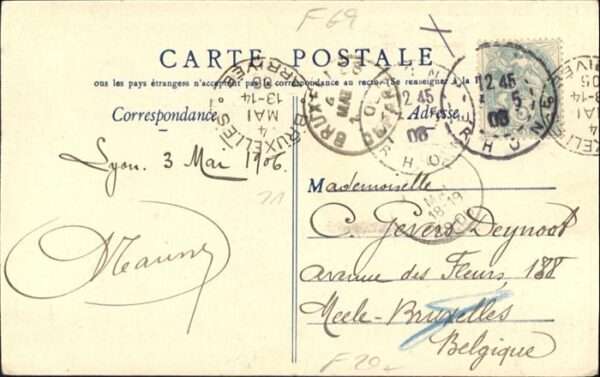 F 69
CARTE POSTALE
ous les pays étrangers n'acceptent pas la correspondance au recto (Se renseigner à la
Correspondance
Adresse
BRUXELLES
ARRIVEE
4
MAI
13-14
12 45
RHONE
Lyon. 3 Mai 1906.
Mademoiselle
C. Gevers Deynoot
avenue des Fleurs, 188
Bruxelles
Belgique
F 20